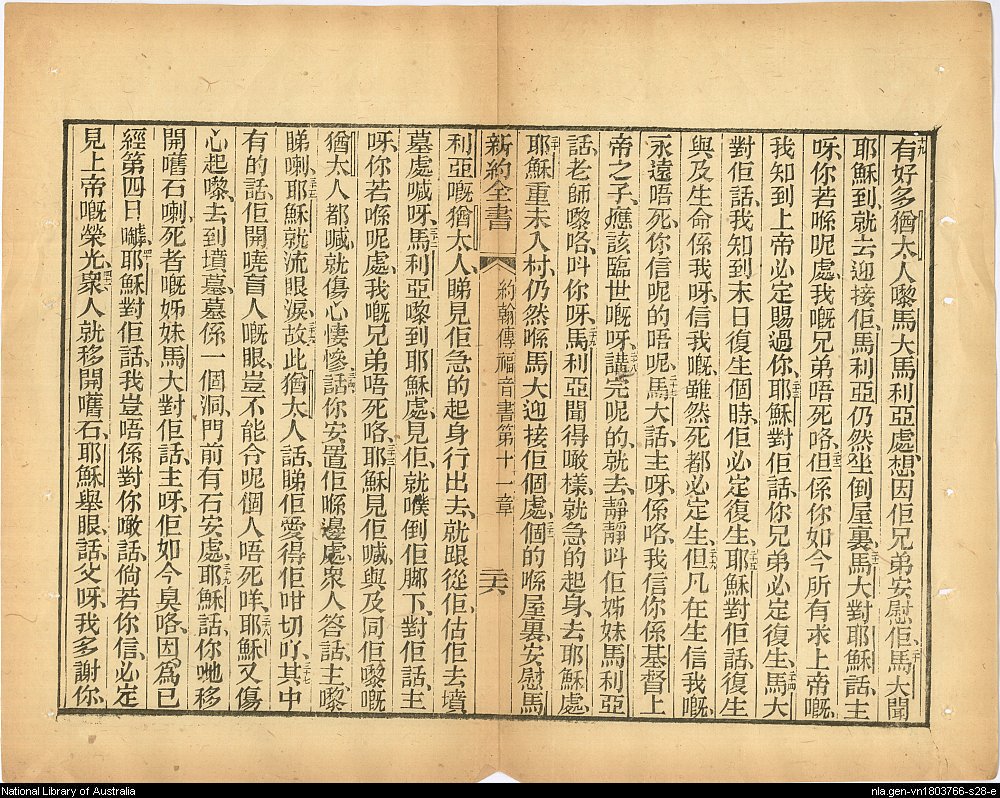 十九有好多猶太人嚟馬大馬利亞處、想因佢兄弟安慰佢、二十馬大聞
耶穌到、就去迎接佢、馬利亞仍然坐倒屋裏、二一馬大對耶穌話、主
呀、你若喺呢處、我嘅兄弟唔死咯、二二但係你如今所有求上帝嘅、
我知到上帝必定賜過你、二三耶穌對佢話、你兄弟必定復生、二四馬大
對佢話、我知到末日復生個時、佢必定復生、二五耶穌對佢話、復生
與及生命係我呀、信我嘅、雖然死都必定生、二六但凡在生信我嘅、
永遠唔死、你信呢的唔呢、二七馬大話、主呀、係咯、我信你係基督上
帝之子、應該臨世嘅呀、二八講完呢的、就去靜靜叫佢姊妹馬利亞
話、老師嚟咯、叫你呀、二九馬利亞聞得噉樣、就急的起身、去耶穌處、
三十耶穌重未入村、仍然喺馬大迎接佢個處、三一個的喺屋裏、安慰馬
新約全書 約翰傳福音書第十一章 二六
利亞嘅猶太人、睇見佢急的起身行出去、就跟從佢、估佢去墳
墓處喊呀、三二馬利亞嚟到耶穌處、見佢、就噗倒佢脚下、對佢話、主
呀、你若喺呢處、我嘅兄弟唔死咯、三三耶穌見佢喊、與及同佢嚟嘅
猶太人都喊、就傷心悽慘、三四話、你安置佢喺邊處、衆人答話、主嚟
睇喇、三五耶穌就流眼淚、三六故此猶太人話、睇佢愛得佢咁切吖、三七其中
有的話、佢開嘵盲人嘅眼、豈不能令呢個人唔死咩、三八耶穌又傷
心起嚟、去到墳墓、墓係一個洞、門前有石安處、三九耶穌話、你哋移
開嚿石喇、死者嘅姊妹馬大對佢話、主呀、佢如今臭咯、因爲已
經第四日嚹、四十耶穌對佢話、我豈唔係對你噉話、倘若你信、必定
見上帝嘅榮光、四一衆人就移開嚿石、耶穌舉眼、話、父呀、我多謝你、
National Library of Australia
nla.gen-vn1803766-s28-e